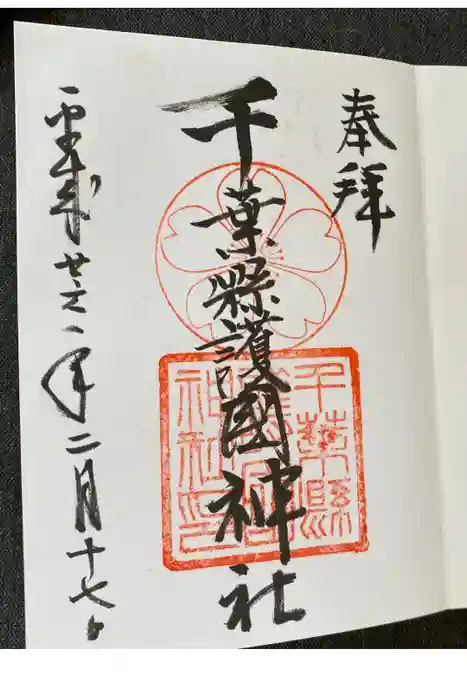 奉拝
千葉縣護國神社
平成廿年二月十七日
千葉縣
神社印